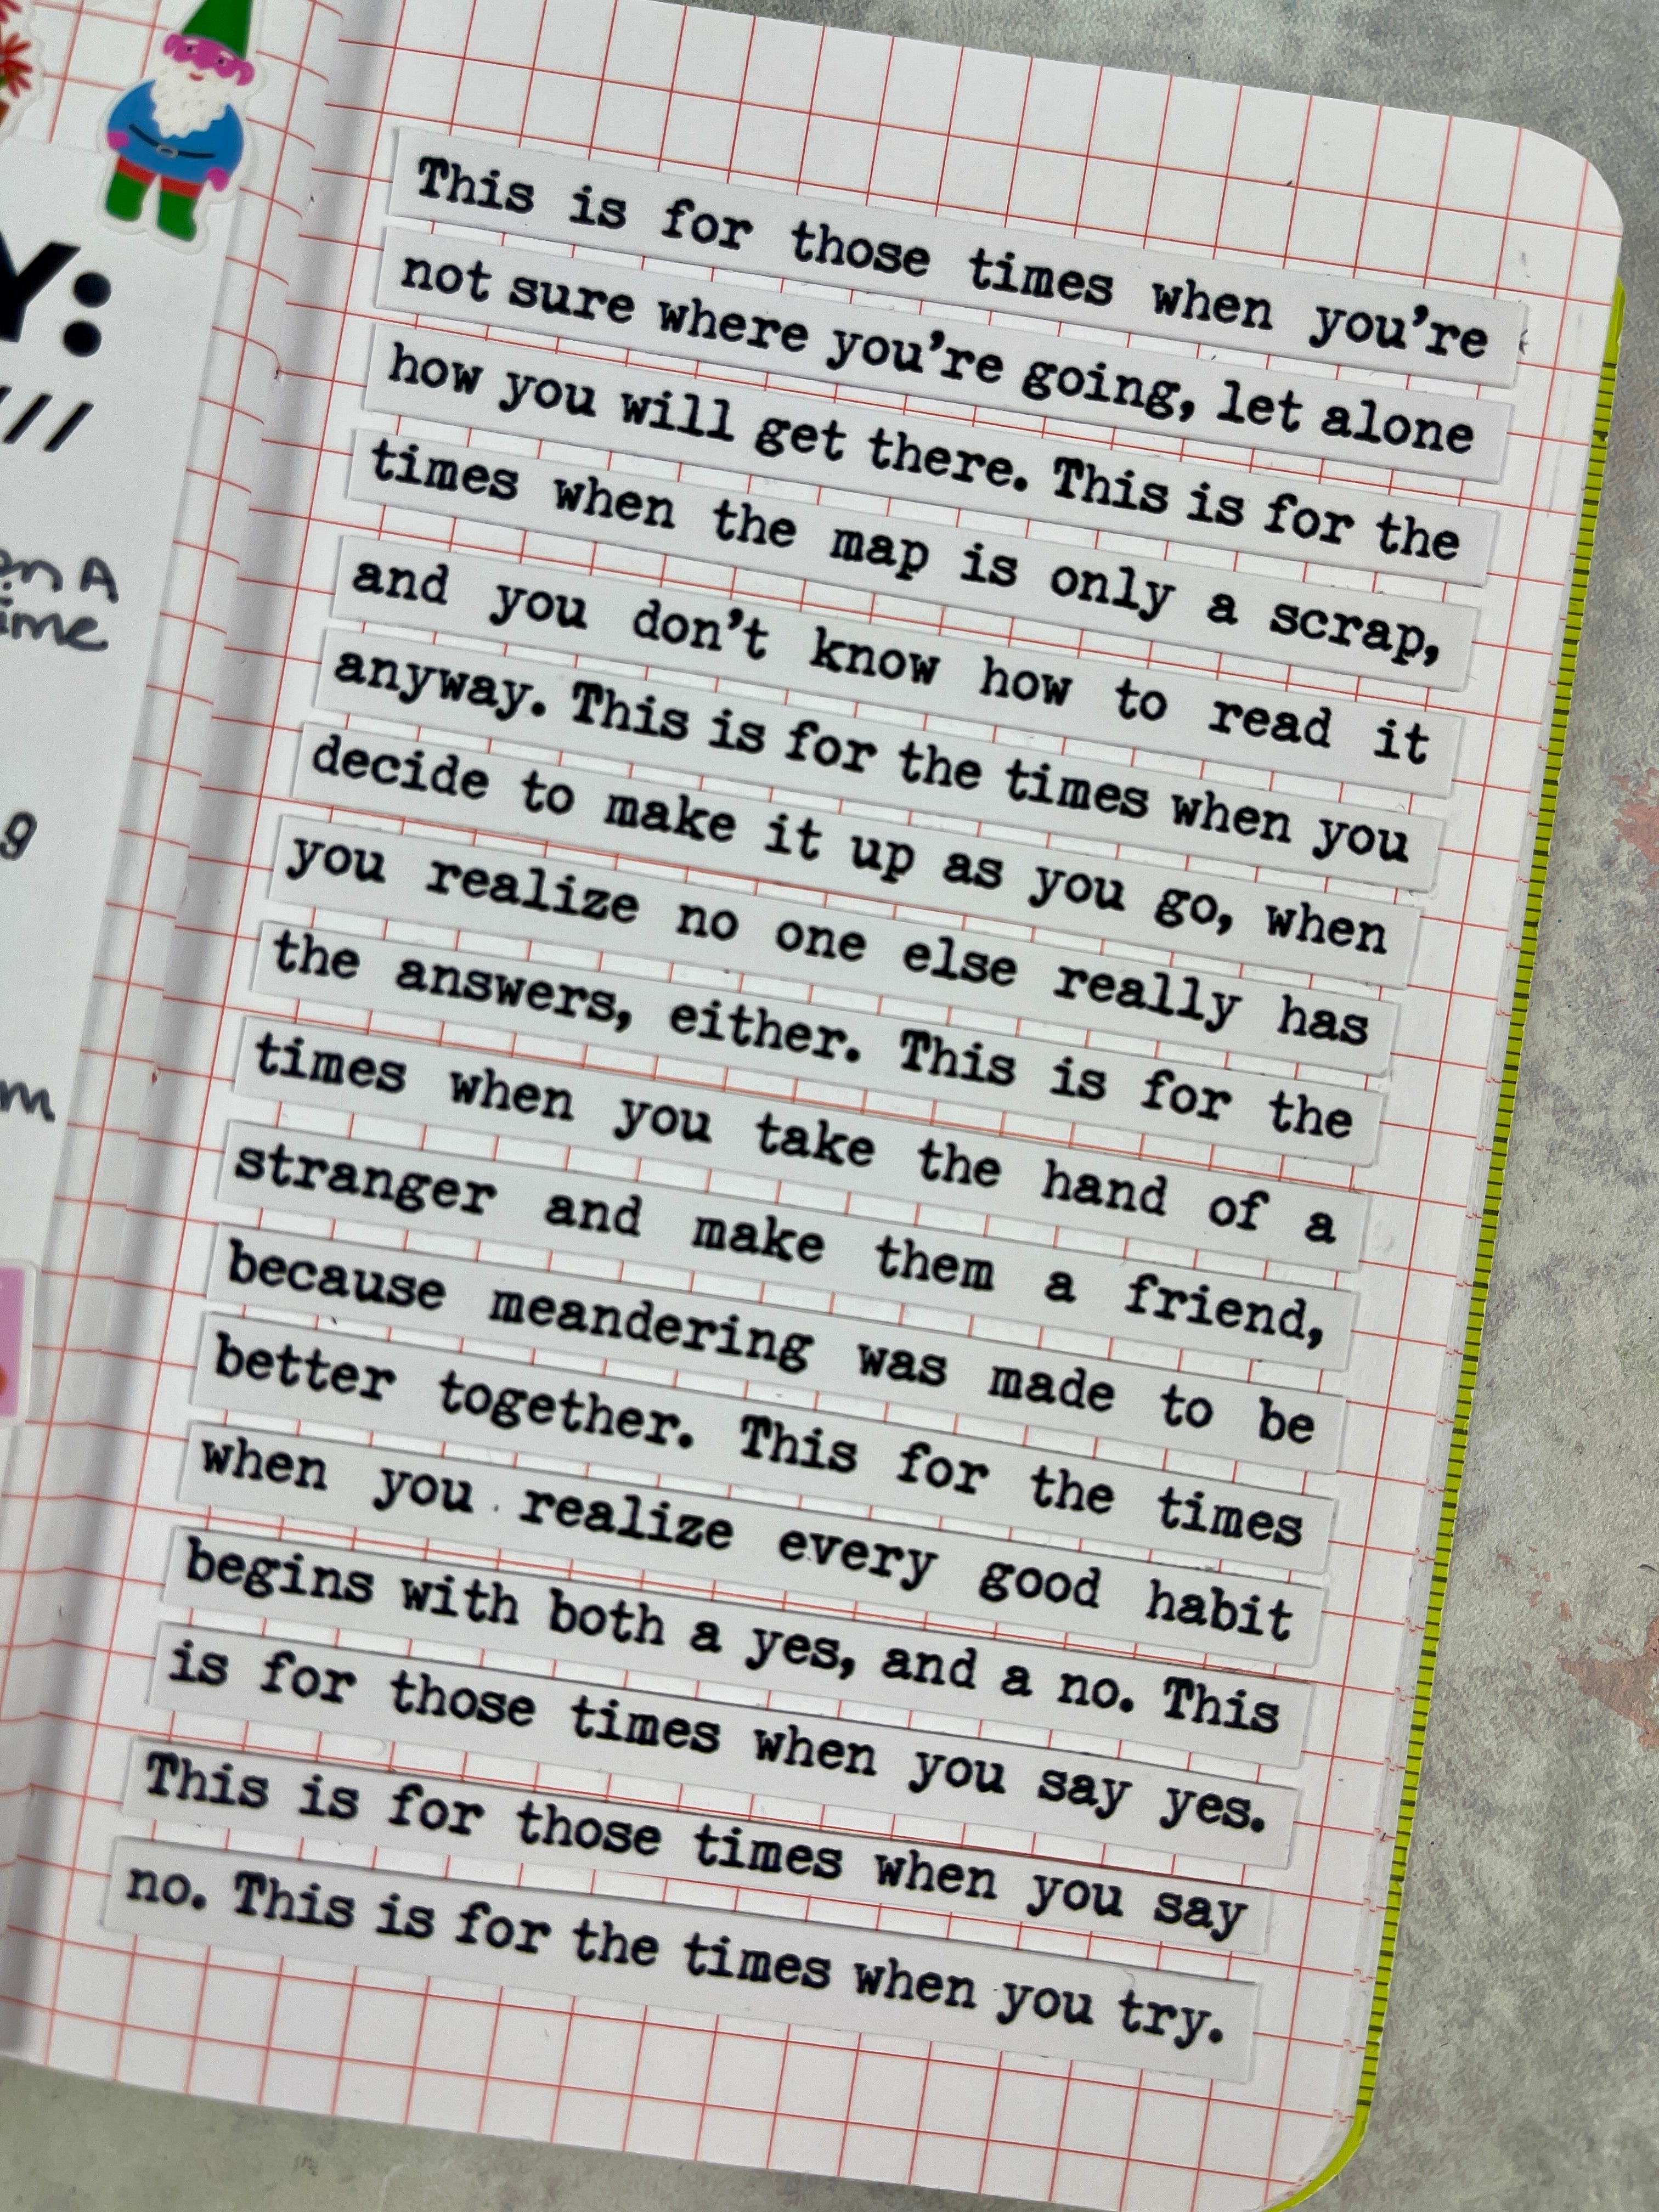 Y:
///
A
g
m
This is for those times when you're
not sure where you're going, let alone
how you will get there. This is for the
times when the map is only a scrap,
and you don't know how to read it
anyway. This is for the times when you
decide to make it up as you go, when
you realize no one else really has
the answers, either. This is for the
times when you take the hand of a
stranger and make them a friend,
because meandering was made to be
better together. This for the times
when you realize every good habit
begins with both a yes, and a no. This
is for those times when you say yes.
This is for those times when you say
no. This is for the times when you try.